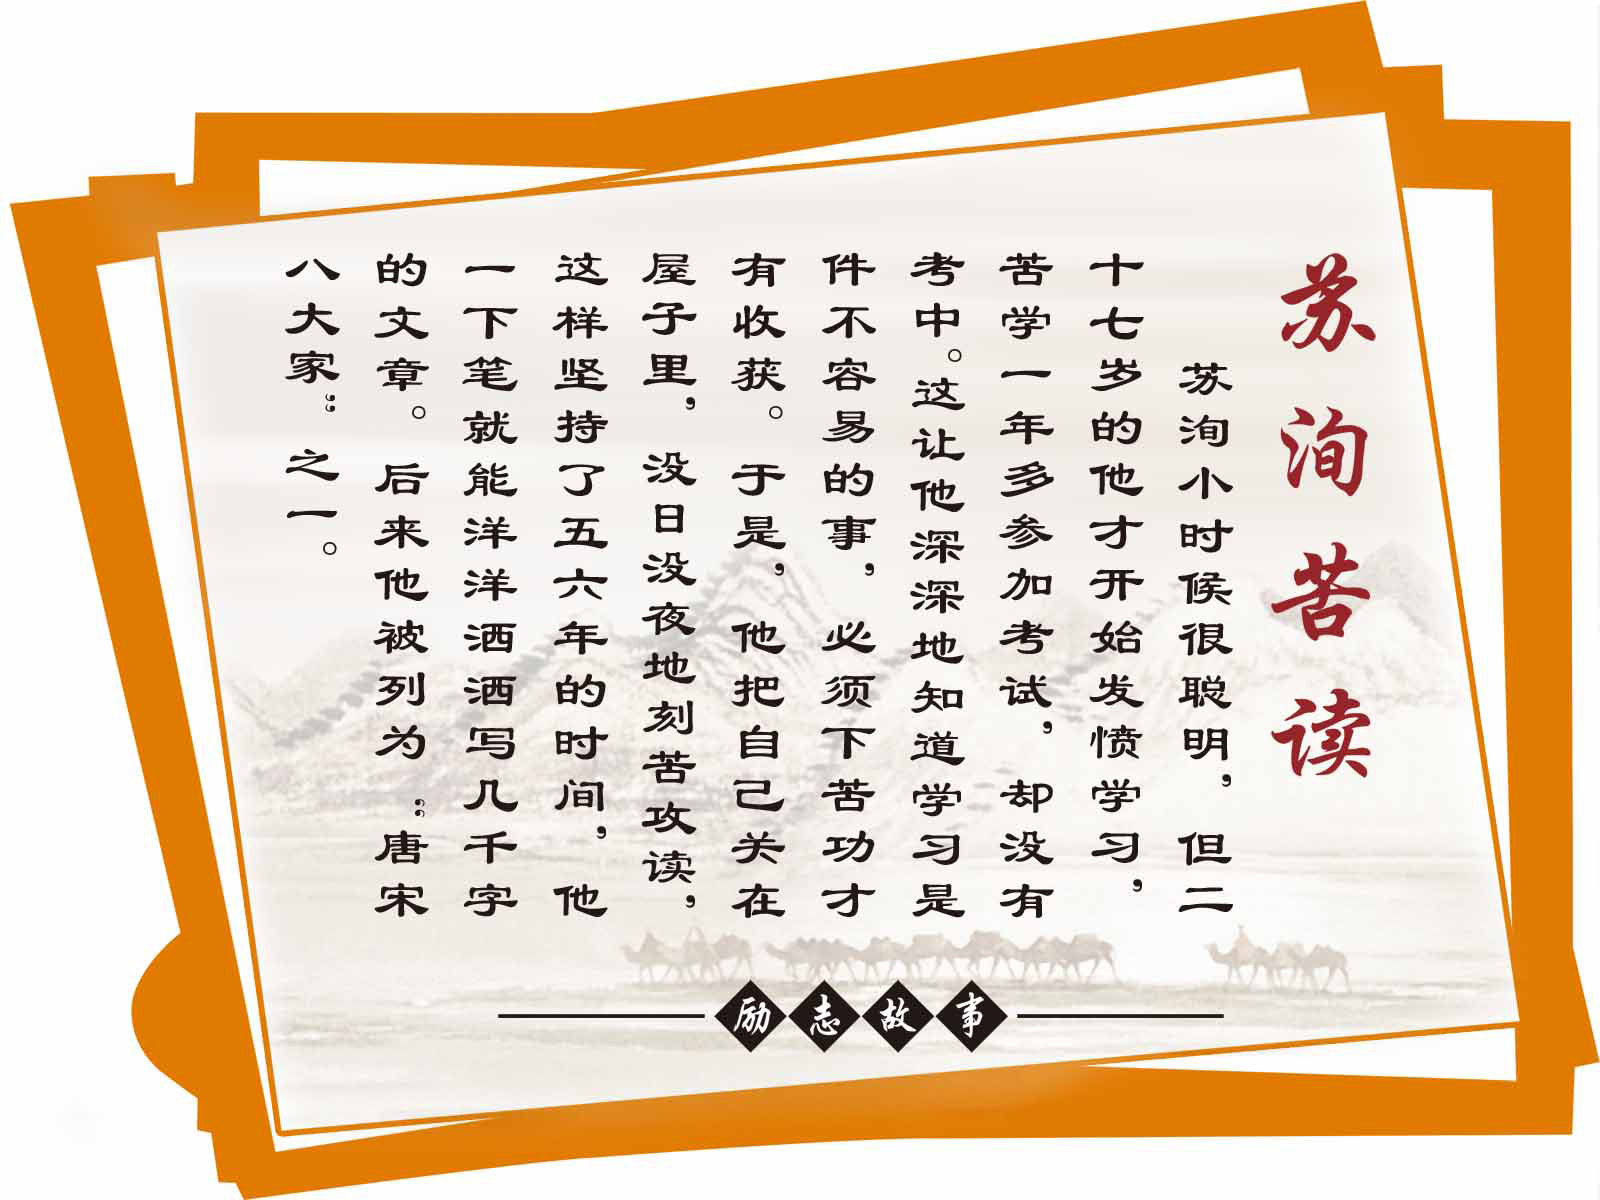 苏洵苦读
苏洵小时候很聪明，但二
十七岁的他才开始发愤学习，
苦学一年多参加考试，却没有
考中。这让他深深地知道学习是
件不容易的事，必须下苦功才
有收获。于是，他把自己关在
屋子里，没日没夜地刻苦攻读，
这样坚持了五六年的时间，他
一下笔就能洋洋洒洒写几千字
的文章。后来他被列为“唐宋
八大家”之一。
励志故事